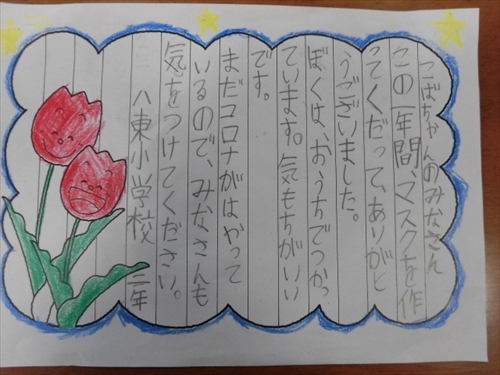 こばちゃんのみなさん
この一年間、マスクを作
ってくだって、ありがと
うございました。
ぼくは、おうちでつかっ
ています。気もちがいい
です。
まだコロナがはやって
いるので、みなさんも
気をつけてください。
八東小学校 二年